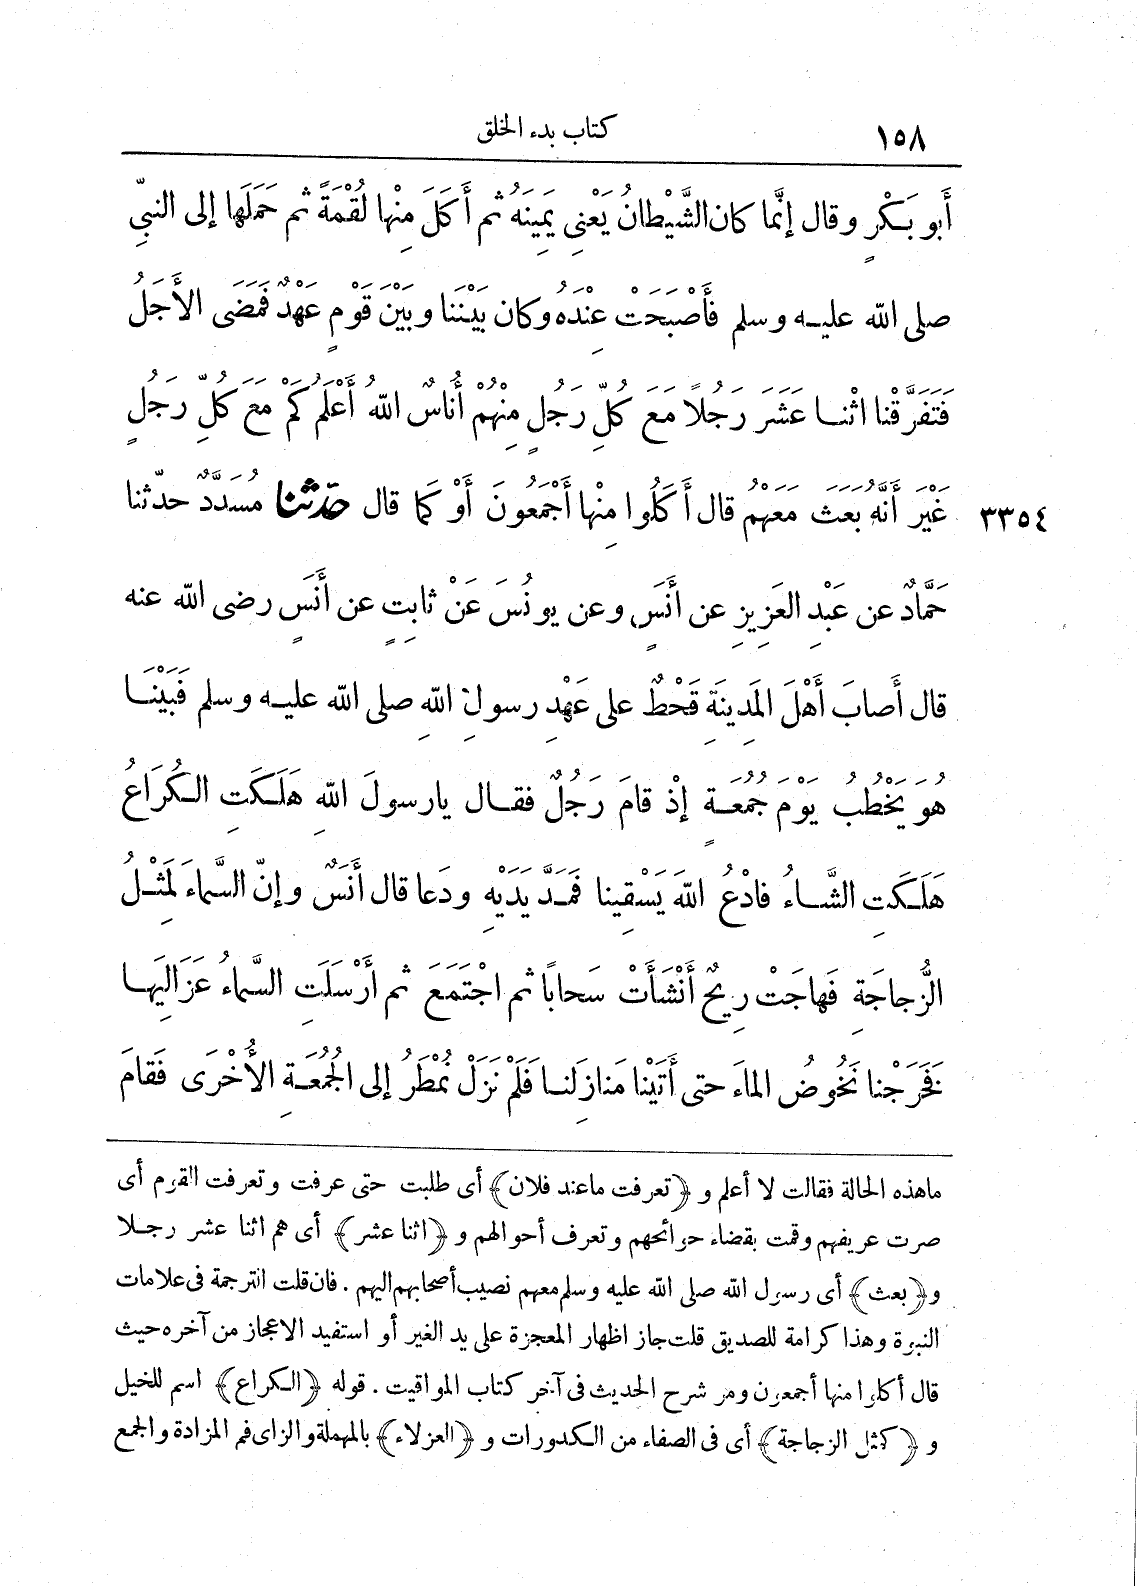 ١٥٨ كتاب بدء الخلق
أَبو بَكْرٍ وقال إنَّما كان الشَّيْطانُ يَعْنِي يَمِينَهُ ثم أَكَلَ مِنْها لُقْمَةً ثم حَمَلَها إلى النبيِّ
صلى الله عليه وسلم فَأَصْبَحَتْ عِنْدَهُ وكان بَيْنَنا وبَيْنَ قَوْمٍ عَهْدٌ فَمَضَى الأَجَلُ
فَتَفَرَّقْنا اثْنا عَشَرَ رَجُلًا مَعَ كُلِّ رَجُلٍ مِنْهُمْ أُناسٌ اللهُ أَعْلَمُ كَمْ مَعَ كُلِّ رَجُلٍ
٣٣٥٤ غَيْرَ أَنَّهُ بَعَثَ مَعَهُمْ قال أَكَلُوا مِنْها أَجْمَعُونَ أَوْ كَمَا قال حدّثنا مُسَدَّدٌ حدّثنا
حَمَّادٌ عن عَبْدِ العَزِيزِ عن أَنَسٍ وعن يونُسَ عَنْ ثابِتٍ عن أَنَسٍ رضى الله عنه
قال أَصابَ أَهْلَ المَدِينَةِ قَحْطٌ على عَهْدِ رسولِ اللهِ صلى الله عليه وسلم فَبَيْنَا
هُوَ يَخْطُبُ يَوْمَ جُمُعَةٍ إذْ قامَ رَجُلٌ فقال يارسولَ اللهِ هَلَكَتِ الكُرَاعُ
هَلَكَتِ الشَّاءُ فادْعُ اللهَ يَسْقِينا فَمَدَّ يَدَيْهِ ودَعا قال أَنَسٌ وإنّ السَّماءَ لَمِثْلُ
الزُّجاجَةِ فَهاجَتْ رِيحٌ أَنْشَأَتْ سَحابًا ثم اجْتَمَعَ ثم أَرْسَلَتِ السَّماءُ عَزَالِيَها
فَخَرَجْنا نَخُوضُ الماءَ حتى أَتَيْنا مَنازِلَنا فَلَمْ نَزَلْ نُمْطَرُ إلى الجُمُعَةِ الأُخْرَى فَقامَ
ماهذه الحالة فقالت لا أعلم و ﴿تعرفت ماعند فلان﴾ أى طلبت حتى عرفت وتعرفت القوم أى
صرت عريفهم وقمت بقضاء حوائجهم وتعرف أحوالهم و ﴿اثنا عشر﴾ أى هم اثنا عشر رجلا
و﴿بعث﴾ أى رسول الله صلى الله عليه وسلم معهم نصيب أصحابهم اليهم . فان قلت الترجمة فى علامات
النبوة وهذا كرامة للصديق قلت جاز اظهار المعجزة على يد الغير أو استفيد الاعجاز من آخره حيث
قال أكلوا منها أجمعون ومر شرح الحديث فى آخر كتاب المواقيت . قوله ﴿الكراع﴾ اسم للخيل
و ﴿كمثل الزجاجة﴾ أى فى الصفاء من الكدورات و ﴿العزلاء﴾ بالمهملة والزاى فم المزادة والجمع